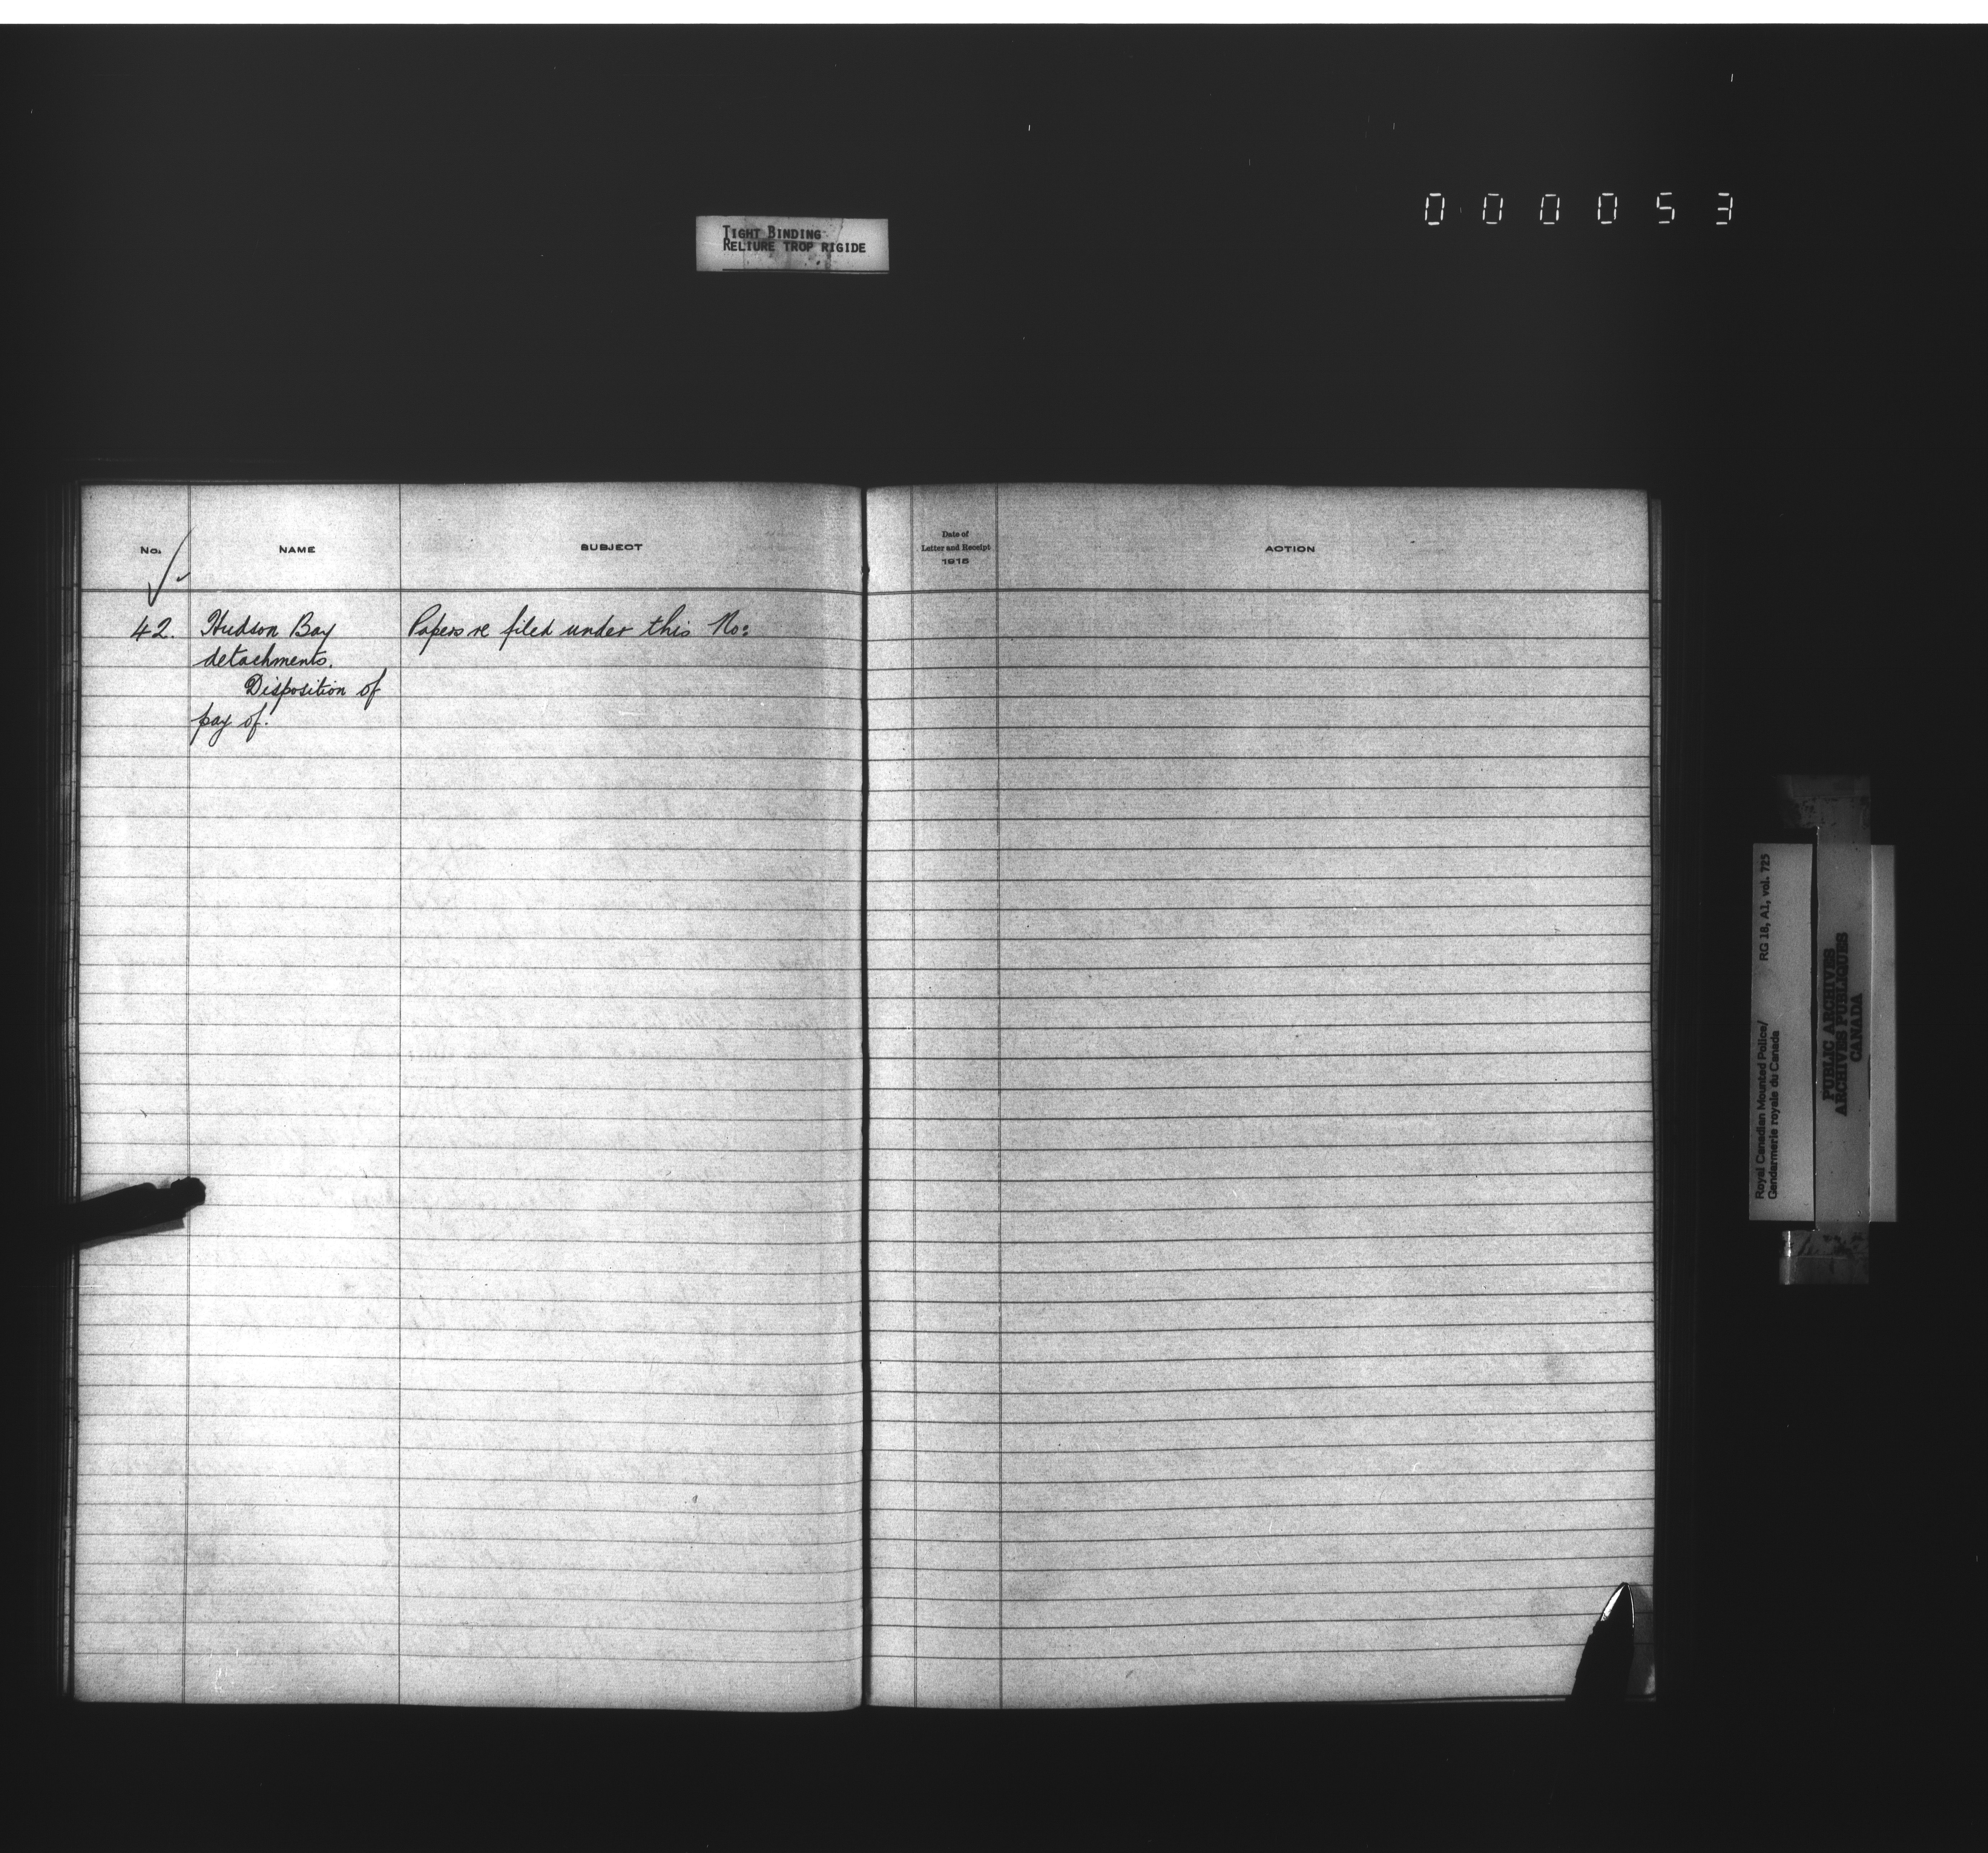 0 0 0 0 5 3
TIGHT BINDING
RELIURE TROP RIGIDE
No. NAME SUBJECT
Date of
Letter and Receipt
1915
ACTION
42. Hudson Bay Papers re filed under this No:
detachments.
Disposition of
pay of.
Royal Canadian Mounted Police/ RG 18, A1, vol. 725
Gendarmerie royale du Canada
PUBLIC ARCHIVES
ARCHIVES PUBLIQUES
CANADA